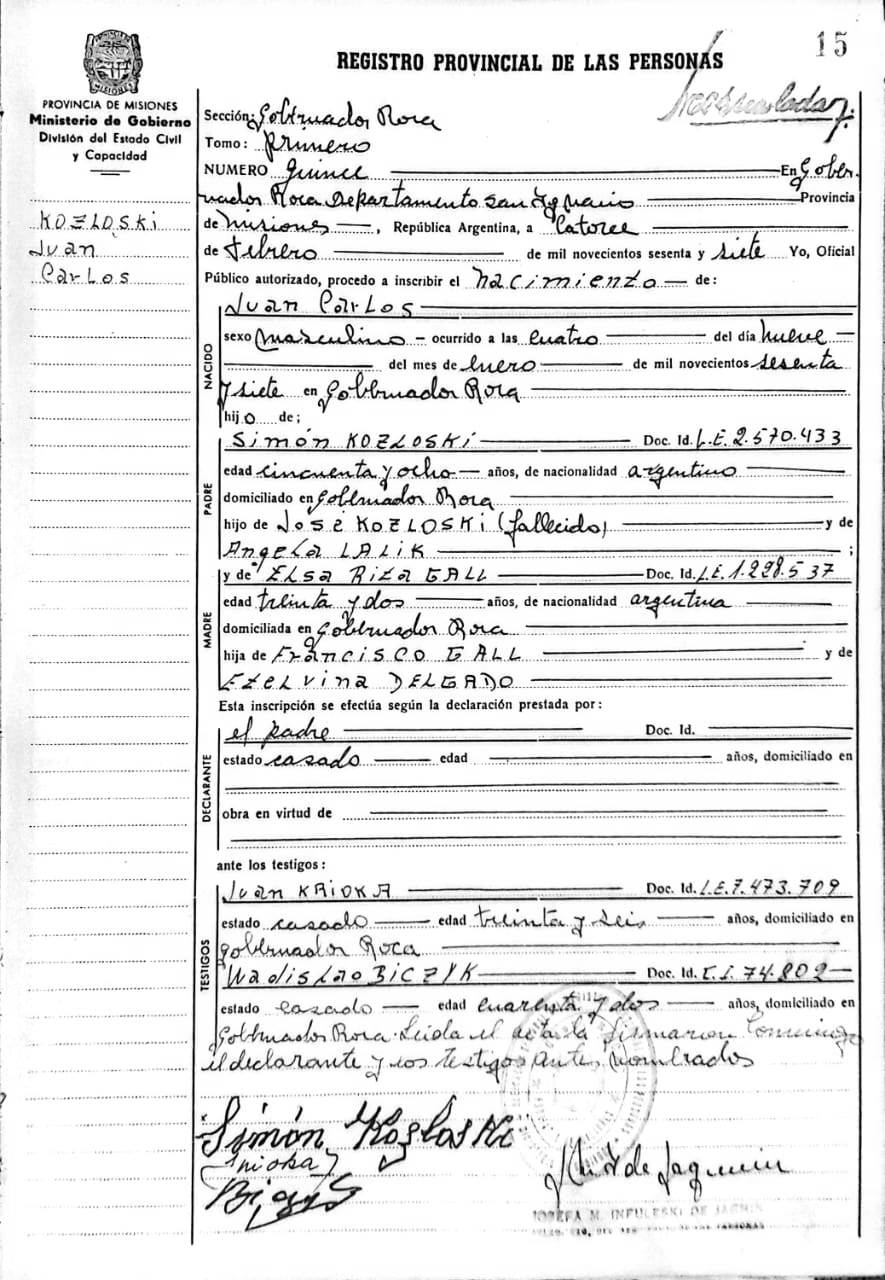 15
REGISTRO PROVINCIAL DE LAS PERSONAS
PROVINCIA DE MISIONES
Ministerio de Gobierno
División del Estado Civil
y Capacidad
KOZLOSKi
Juan
Carlos
Sección: Gobernador Roca
Tomo: primero
NUMERO quince En Gober
nador Roca Departamento San Ignacio Provincia
de Misiones, República Argentina, a Catorce
de Febrero de mil novecientos sesenta y siete Yo, Oficial
Público autorizado, procedo a inscribir el nacimiento de:
NACIDO
Juan Carlos
sexo masculino - ocurrido a las cuatro del día nueve
del mes de enero de mil novecientos sesenta
y siete en Gobernador Roca
hijo de;
PADRE
Simón KOZLOSKi Doc. Id. L.E. 2.570.433
edad cincuenta y ocho años, de nacionalidad argentino
domiciliado en Gobernador Roca
hijo de José KOZLOSKi (fallecido) y de
Angela LALIK ;
MADRE
y de Elsa Rita GALL Doc. Id. L.E. 1.228.537
edad treinta y dos años, de nacionalidad argentina
domiciliada en Gobernador Roca
hija de Francisco GALL y de
Etelvina DELGADO
Esta inscripción se efectúa según la declaración prestada por:
DECLARANTE
el padre Doc. Id.
estado casado edad años, domiciliado en
obra en virtud de
ante los testigos:
TESTIGOS
Juan KRIOKA Doc. Id. L.E. 7.473.709
estado casado edad treinta y seis años, domiciliado en
gobernador Roca
Wadislao BICZYK Doc. Id. C.I. 74.802
estado casado edad cuarenta y dos años, domiciliado en
Gobernador Roca. Leida el acta la firmaron conmigo
el declarante y los testigos antes nombrados
Simón Kozloski
JOSEFA M. INFULESKI DE JACMIN